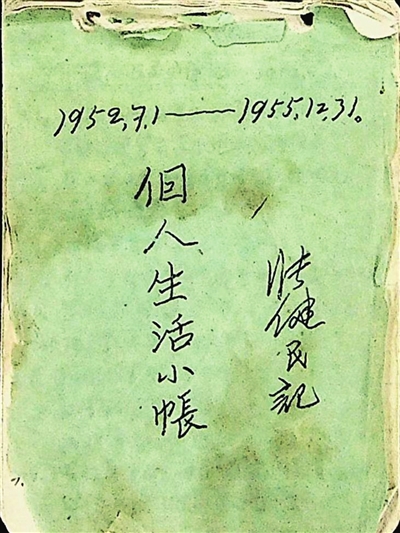 1952.7.1——1955.12.31。
個人生活小帳
张健民記